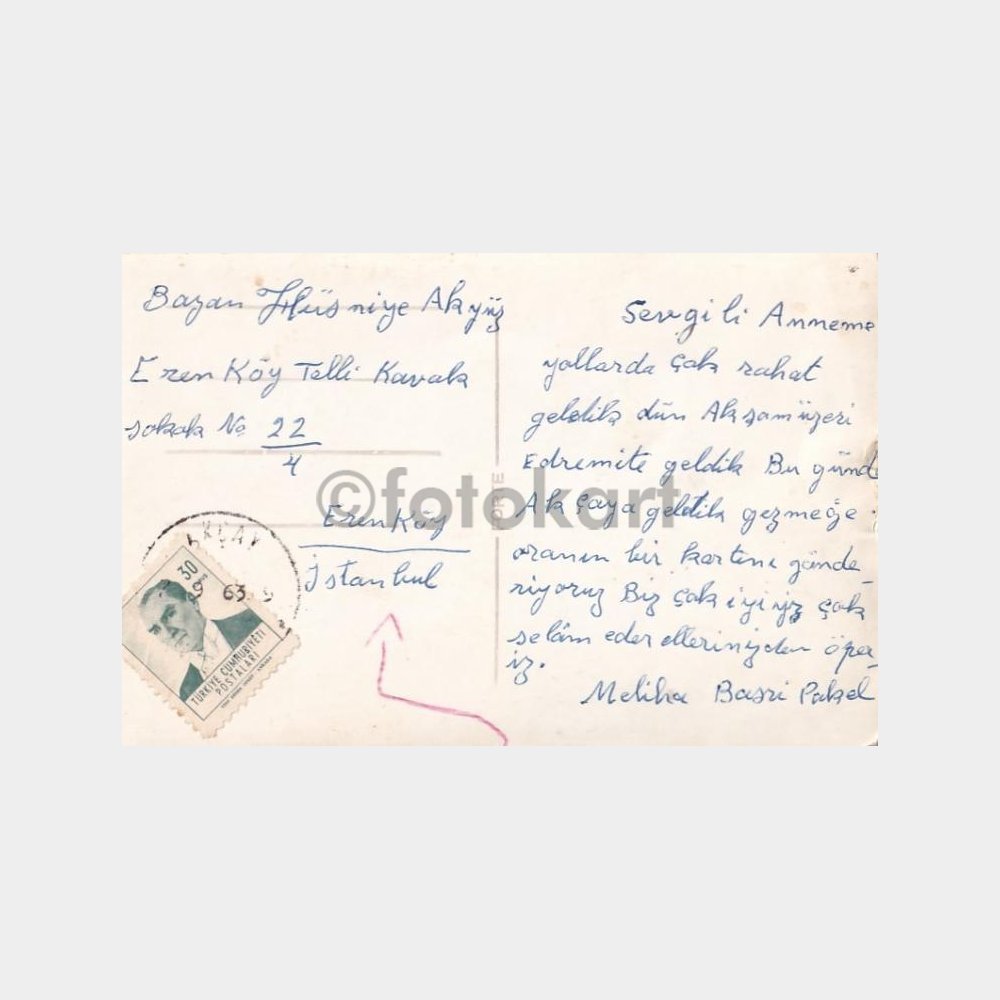 Bayan Hüsniye Akyüz
Eren Köy Telli Kavak
sokak No 22
4
Eren Köy
İstanbul
AKÇAY
9 63
30
TÜRKİYE CUMHURİYETİ
POSTALARI
Sevgili Anneme
yollarda çok rahat
geldik dün Akşamüzeri
Edremite geldik Bu günde
Akçaya geldik gezmeğe
oranın bir kartını gönde
riyoruz Biz çok iyiyiz çok
selâm eder ellerinizden öper-
iz.
Meliha Basri Paksel
©fotokart